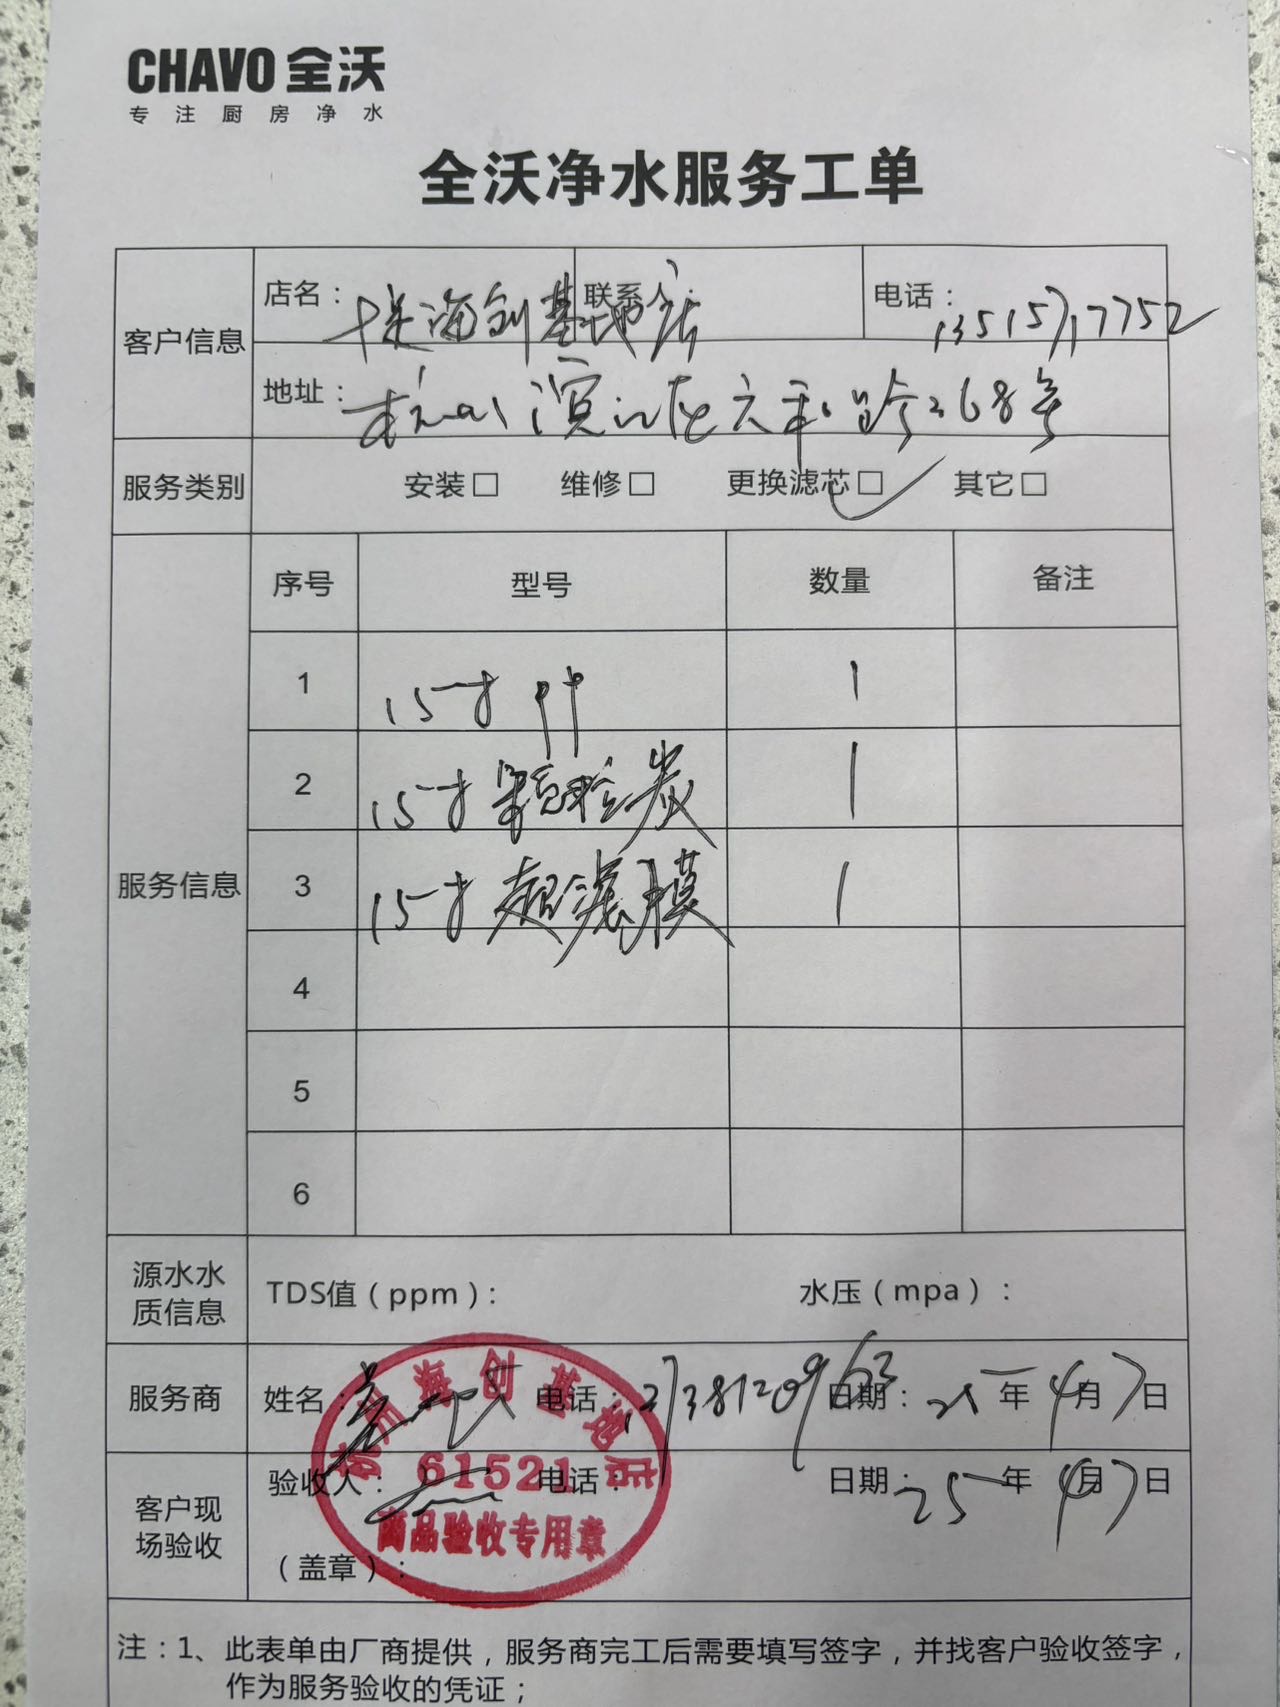 CHAVO 全沃
专注厨房净水
全沃净水服务工单
客户信息
店名： 海创基地店 联系人： 电话：13515717752
地址：杭州滨江区六和路268号
服务类别 安装□ 维修□ 更换滤芯□ 其它□
服务信息
序号 型号 数量 备注
1 15寸 PP 1
2 15寸 颗粒炭 1
3 15寸 超滤膜 1
4
5
6
源水水质信息 TDS值（ppm）： 水压（mpa）：
服务商 姓名： 电话：13738120963 日期：25年4月7日
客户现场验收 验收人： 电话： 日期：25年4月7日
（盖章）：
杭州海创基地店
61521
商品验收专用章
注：1、此表单由厂商提供，服务商完工后需要填写签字，并找客户验收签字，
作为服务验收的凭证；